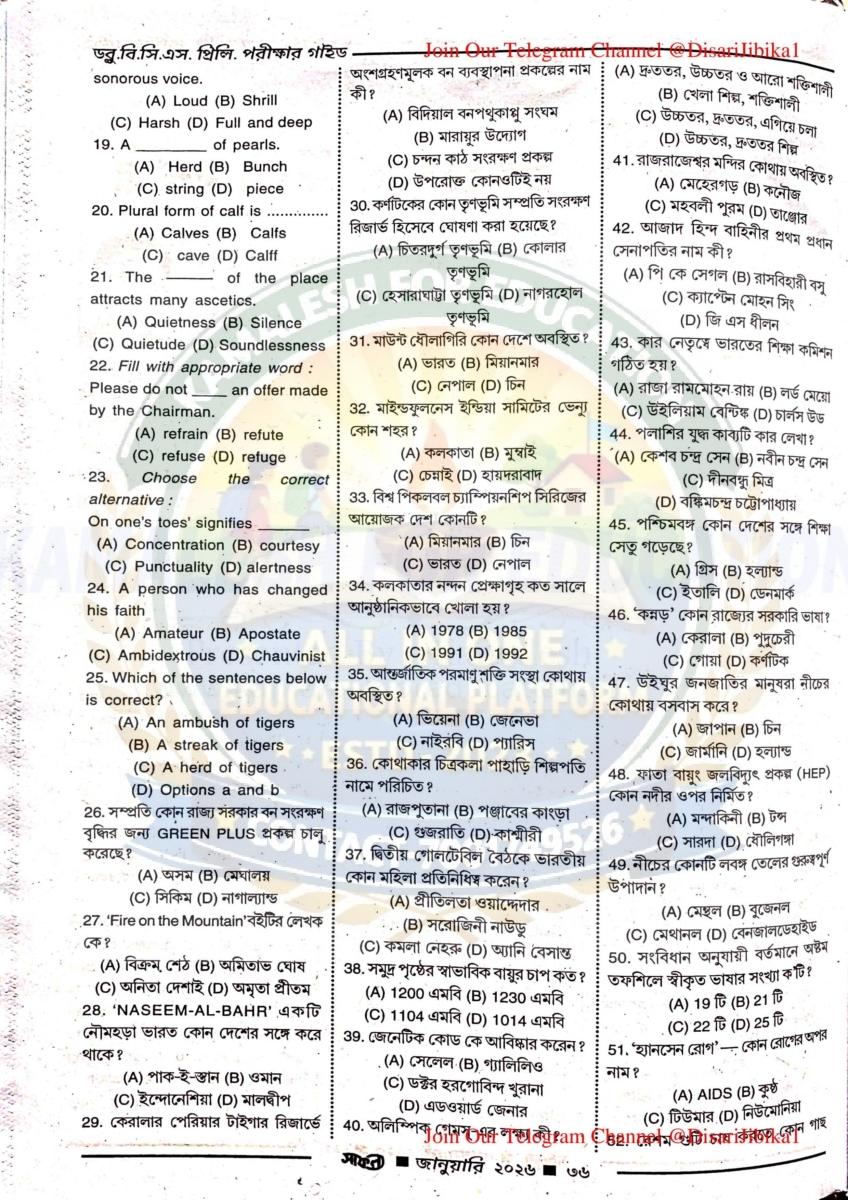 ডব্লু.বি.সি.এস. প্রিলি. পরীক্ষার গাইড
Join Our Telegram Channel @DisariJibika1
sonorous voice.
(A) Loud (B) Shrill
(C) Harsh (D) Full and deep
19. A ________ of pearls.
(A) Herd (B) Bunch
(C) string (D) piece
20. Plural form of calf is ..............
(A) Calves (B) Calfs
(C) cave (D) Calff
21. The ______ of the place
attracts many ascetics.
(A) Quietness (B) Silence
(C) Quietude (D) Soundlessness
22. Fill with appropriate word :
Please do not ____ an offer made
by the Chairman.
(A) refrain (B) refute
(C) refuse (D) refuge
23. Choose the correct
alternative :
On one's toes' signifies ______
(A) Concentration (B) courtesy
(C) Punctuality (D) alertness
24. A person who has changed
his faith
(A) Amateur (B) Apostate
(C) Ambidextrous (D) Chauvinist
25. Which of the sentences below
is correct?
(A) An ambush of tigers
(B) A streak of tigers
(C) A herd of tigers
(D) Options a and b
26. সম্প্রতি কোন রাজ্য সরকার বন সংরক্ষণ
বৃদ্ধির জন্য GREEN PLUS প্রকল্প চালু
করেছে?
(A) অসম (B) মেঘালয়
(C) সিকিম (D) নাগাল্যান্ড
27. 'Fire on the Mountain' বইটির লেখক
কে?
(A) বিক্রম শেঠ (B) অমিতাভ ঘোষ
(C) অনিতা দেশাই (D) অমৃতা প্রীতম
28. 'NASEEM-AL-BAHR' একটি
নৌমহড়া ভারত কোন দেশের সঙ্গে করে
থাকে?
(A) পাক-ই-স্তান (B) ওমান
(C) ইন্দোনেশিয়া (D) মালদ্বীপ
29. কেরালার পেরিয়ার টাইগার রিজার্ভে
অংশগ্রহণমূলক বন ব্যবস্থাপনা প্রকল্পের নাম
কী?
(A) বিদিয়াল বনপথুকাপ্পু সংঘম
(B) মারায়ুর উদ্যোগ
(C) চন্দন কাঠ সংরক্ষণ প্রকল্প
(D) উপরোক্ত কোনওটিই নয়
30. কর্ণাটকের কোন তৃণভূমি সম্প্রতি সংরক্ষণ
রিজার্ভ হিসেবে ঘোষণা করা হয়েছে?
(A) চিতরদুর্গ তৃণভূমি (B) কোলার
তৃণভূমি
(C) হেসারাঘাট্টা তৃণভূমি (D) নাগরহোল
তৃণভূমি
31. মাউন্ট ধৌলাগিরি কোন দেশে অবস্থিত?
(A) ভারত (B) মিয়ানমার
(C) নেপাল (D) চিন
32. মাইন্ডফুলনেস ইন্ডিয়া সামিটের ভেন্যু
কোন শহর?
(A) কলকাতা (B) মুম্বাই
(C) চেন্নাই (D) হায়দরাবাদ
33. বিশ্ব পিকলবল চ্যাম্পিয়নশিপ সিরিজের
আয়োজক দেশ কোনটি?
(A) মিয়ানমার (B) চিন
(C) ভারত (D) নেপাল
34. কলকাতার নন্দন প্রেক্ষাগৃহ কত সালে
আনুষ্ঠানিকভাবে খোলা হয়?
(A) 1978 (B) 1985
(C) 1991 (D) 1992
35. আন্তর্জাতিক পরমাণু শক্তি সংস্থা কোথায়
অবস্থিত?
(A) ভিয়েনা (B) জেনেভা
(C) নাইরবি (D) প্যারিস
36. কোথাকার চিত্রকলা পাহাড়ি শিল্পপতি
নামে পরিচিত?
(A) রাজপুতানা (B) পঞ্জাবের কাংড়া
(C) গুজরাতি (D) কাশ্মীরী
37. দ্বিতীয় গোলটেবিল বৈঠকে ভারতীয়
কোন মহিলা প্রতিনিধিত্ব করেন?
(A) প্রীতিলতা ওয়াদ্দেদার
(B) সরোজিনী নাউডু
(C) কমলা নেহরু (D) অ্যানি বেসান্ত
38. সমুদ্র পৃষ্ঠের স্বাভাবিক বায়ুর চাপ কত?
(A) 1200 এমবি (B) 1230 এমবি
(C) 1104 এমবি (D) 1014 এমবি
39. জেনেটিক কোড কে আবিষ্কার করেন?
(A) সেলেল (B) গ্যালিলিও
(C) ডক্টর হরগোবিন্দ খুরানা
(D) এডওয়ার্ড জেনার
40. অলিম্পিক গেমস এর লক্ষ্য কী?
(A) দ্রুততর, উচ্চতর ও আরো শক্তিশালী
(B) খেলা শিল্প, শক্তিশালী
(C) উচ্চতর, দ্রুততর, এগিয়ে চলা
(D) উচ্চতর, দ্রুততর শিল্প
41. রাজরাজেশ্বর মন্দির কোথায় অবস্থিত?
(A) মেহেরগড় (B) কনৌজ
(C) মহবলী পুরম (D) তাঞ্জোর
42. আজাদ হিন্দ বাহিনীর প্রথম প্রধান
সেনাপতির নাম কী?
(A) পি কে সেগল (B) রাসবিহারী বসু
(C) ক্যাপ্টেন মোহন সিং
(D) জি এস ধীলন
43. কার নেতৃত্বে ভারতের শিক্ষা কমিশন
গঠিত হয়?
(A) রাজা রামমোহন রায় (B) লর্ড মেয়ো
(C) উইলিয়াম বেন্টিঙ্ক (D) চার্লস উড
44. পলাশির যুদ্ধ কাব্যটি কার লেখা?
(A) কেশব চন্দ্র সেন (B) নবীন চন্দ্র সেন
(C) দীনবন্ধু মিত্র
(D) বঙ্কিমচন্দ্র চট্টোপাধ্যায়
45. পশ্চিমবঙ্গ কোন দেশের সঙ্গে শিক্ষা
সেতু গড়েছে?
(A) গ্রিস (B) হল্যান্ড
(C) ইতালি (D) ডেনমার্ক
46. 'কন্নড়' কোন রাজ্যের সরকারি ভাষা?
(A) কেরালা (B) পুদুচেরী
(C) গোয়া (D) কর্ণাটক
47. উইঘুর জনজাতির মানুষরা নীচের
কোথায় বসবাস করে?
(A) জাপান (B) চিন
(C) জার্মানি (D) হল্যান্ড
48. ফাতা বায়ুং জলবিদ্যুৎ প্রকল্প (HEP)
কোন নদীর ওপর নির্মিত?
(A) মন্দাকিনী (B) টন্স
(C) সারদা (D) ধৌলিগঙ্গা
49. নীচের কোনটি লবঙ্গ তেলের গুরুত্বপূর্ণ
উপাদান?
(A) মেন্থল (B) বুজেনল
(C) মেথানল (D) বেনজালডেহাইড
50. সংবিধান অনুযায়ী বর্তমানে অষ্টম
তফশিলে স্বীকৃত ভাষার সংখ্যা ক'টি?
(A) 19 টি (B) 21 টি
(C) 22 টি (D) 25 টি
51. 'হ্যানসেন রোগ'— কোন রোগের অপর
নাম?
(A) AIDS (B) কুষ্ঠ
(C) টিউমার (D) নিউমোনিয়া
52. রেশম গুটি চাষ করতে কোন গাছ
Join Our Telegram Channel @DisariJibika1
সাফল্য ■ জানুয়ারি ২০২৬ ■ ৩৬
KAMALESH FOR EDUCATION
ALL IN ONE
EDUCATIONAL PLATFORM